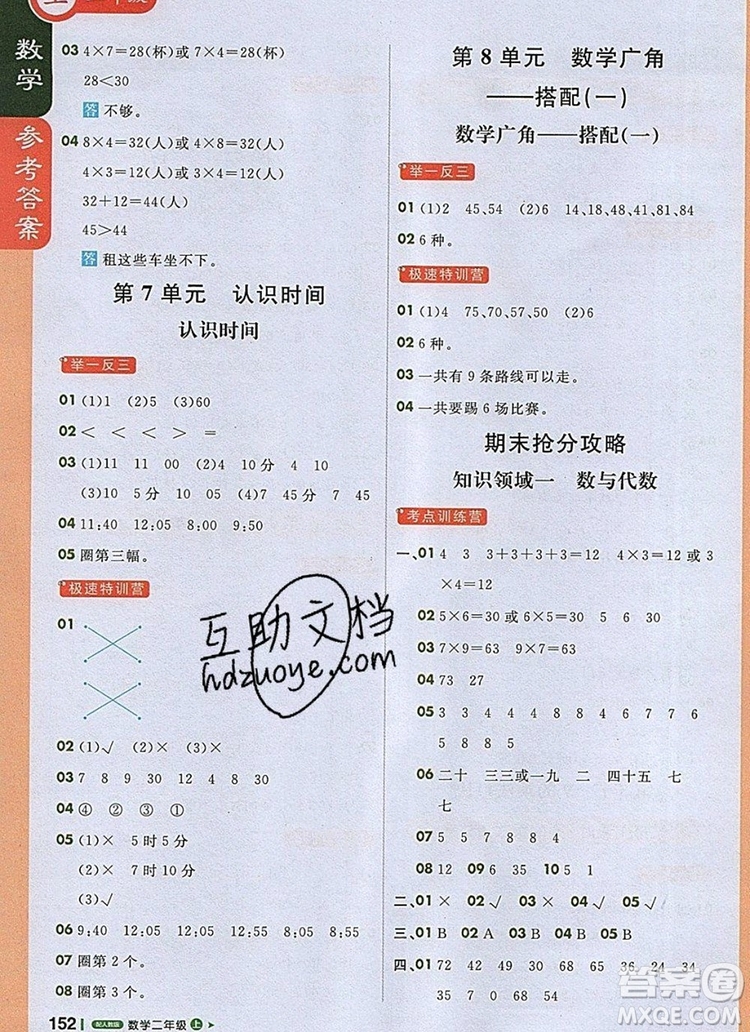 数学
参考答案
03 4×7=28(杯)或7×4=28(杯)
28<30
答 不够。
04 8×4=32(人)或4×8=32(人)
4×3=12(人)或3×4=12(人)
32+12=44(人)
45>44
答 租这些车坐不下。
第7单元 认识时间
认识时间
举一反三
01 (1)1 (2)5 (3)60
02 < < < > =
03 (1)10 45分 (2)4 10分 4 10
(3)10 5分 10 05 (4)7 45分 7 45
04 11:40 12:05 8:00 9:50
05 圈第三幅。
极速特训营
01
02 (1)√ (2)× (3)×
03 7 8 9 30 12 4 8 30
04 ④ ② ③ ①
05 (1)× 5时5分
(2)× 7时10分
(3)√
06 9:40 12:05 12:05 8:55 8:55 9:40
07 圈第2个。
08 圈第3个。
152 配人教版 数学二年级 上
第8单元 数学广角
——搭配(一)
数学广角——搭配(一)
举一反三
01 (1)2 45、54 (2)6 14、18、48、41、81、84
02 6种。
极速特训营
01 (1)4 75、70、57、50 (2)4
02 6种。
03 一共有9条路线可以走。
04 一共要踢6场比赛。
期末抢分攻略
知识领域一 数与代数
考点训练营
一、01 4 3 3+3+3+3=12 4×3=12或3
×4=12
02 5×6=30或6×5=30 5 6 30
03 7×9=63或9×7=63
04 73 27
05 3 3 4 4 8 8 4 6 7 7 6
5 8 8 5
06 二十 三三或一九 二 四十五 七
七
07 5 5 7 8 8 6 54
08 12 09 6 35 10 5 1
二、01 × 02 √ 03 × 04 √ 05 √
三、01 B 02 A 03 B 04 B 05 B
四、01 42 45 48 35 66 36 24 34
35 7 0 68 54
互助文档
hdzuoye.com
答案圈
MXQE.COM